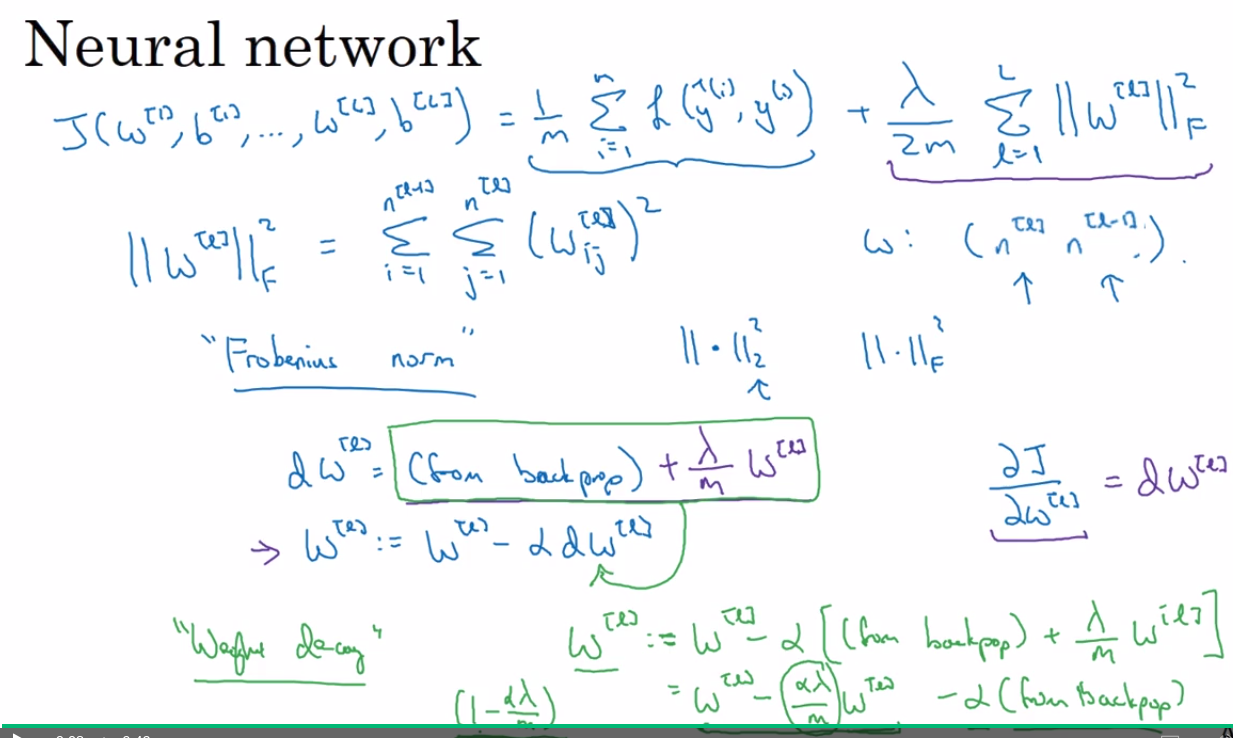 Neural network
J(w^[1], b^[1], ..., w^[L], b^[L]) = 1/m Σ_{i=1}^{n} L(ŷ^(i), y^(i)) + λ/2m Σ_{l=1}^{L} ||w^[l]||²_F
||w^[l]||²_F = Σ_{i=1}^{n^[l-1]} Σ_{j=1}^{n^[l]} (w_ij^[l])² w: (n^[l] n^[l-1]).
"Frobenius norm" ||·||²_2 ||·||²_F
dw^[l] = (from backprop) + λ/m w^[l] ∂J/∂w^[l] = dw^[l]
→ w^[l] := w^[l] - α dw^[l]
"Weight decay" w^[l] := w^[l] - α [(from backpop) + λ/m w^[l]]
(1 - αλ/m) = w^[l] - (αλ/m) w^[l] - α (from backpop)